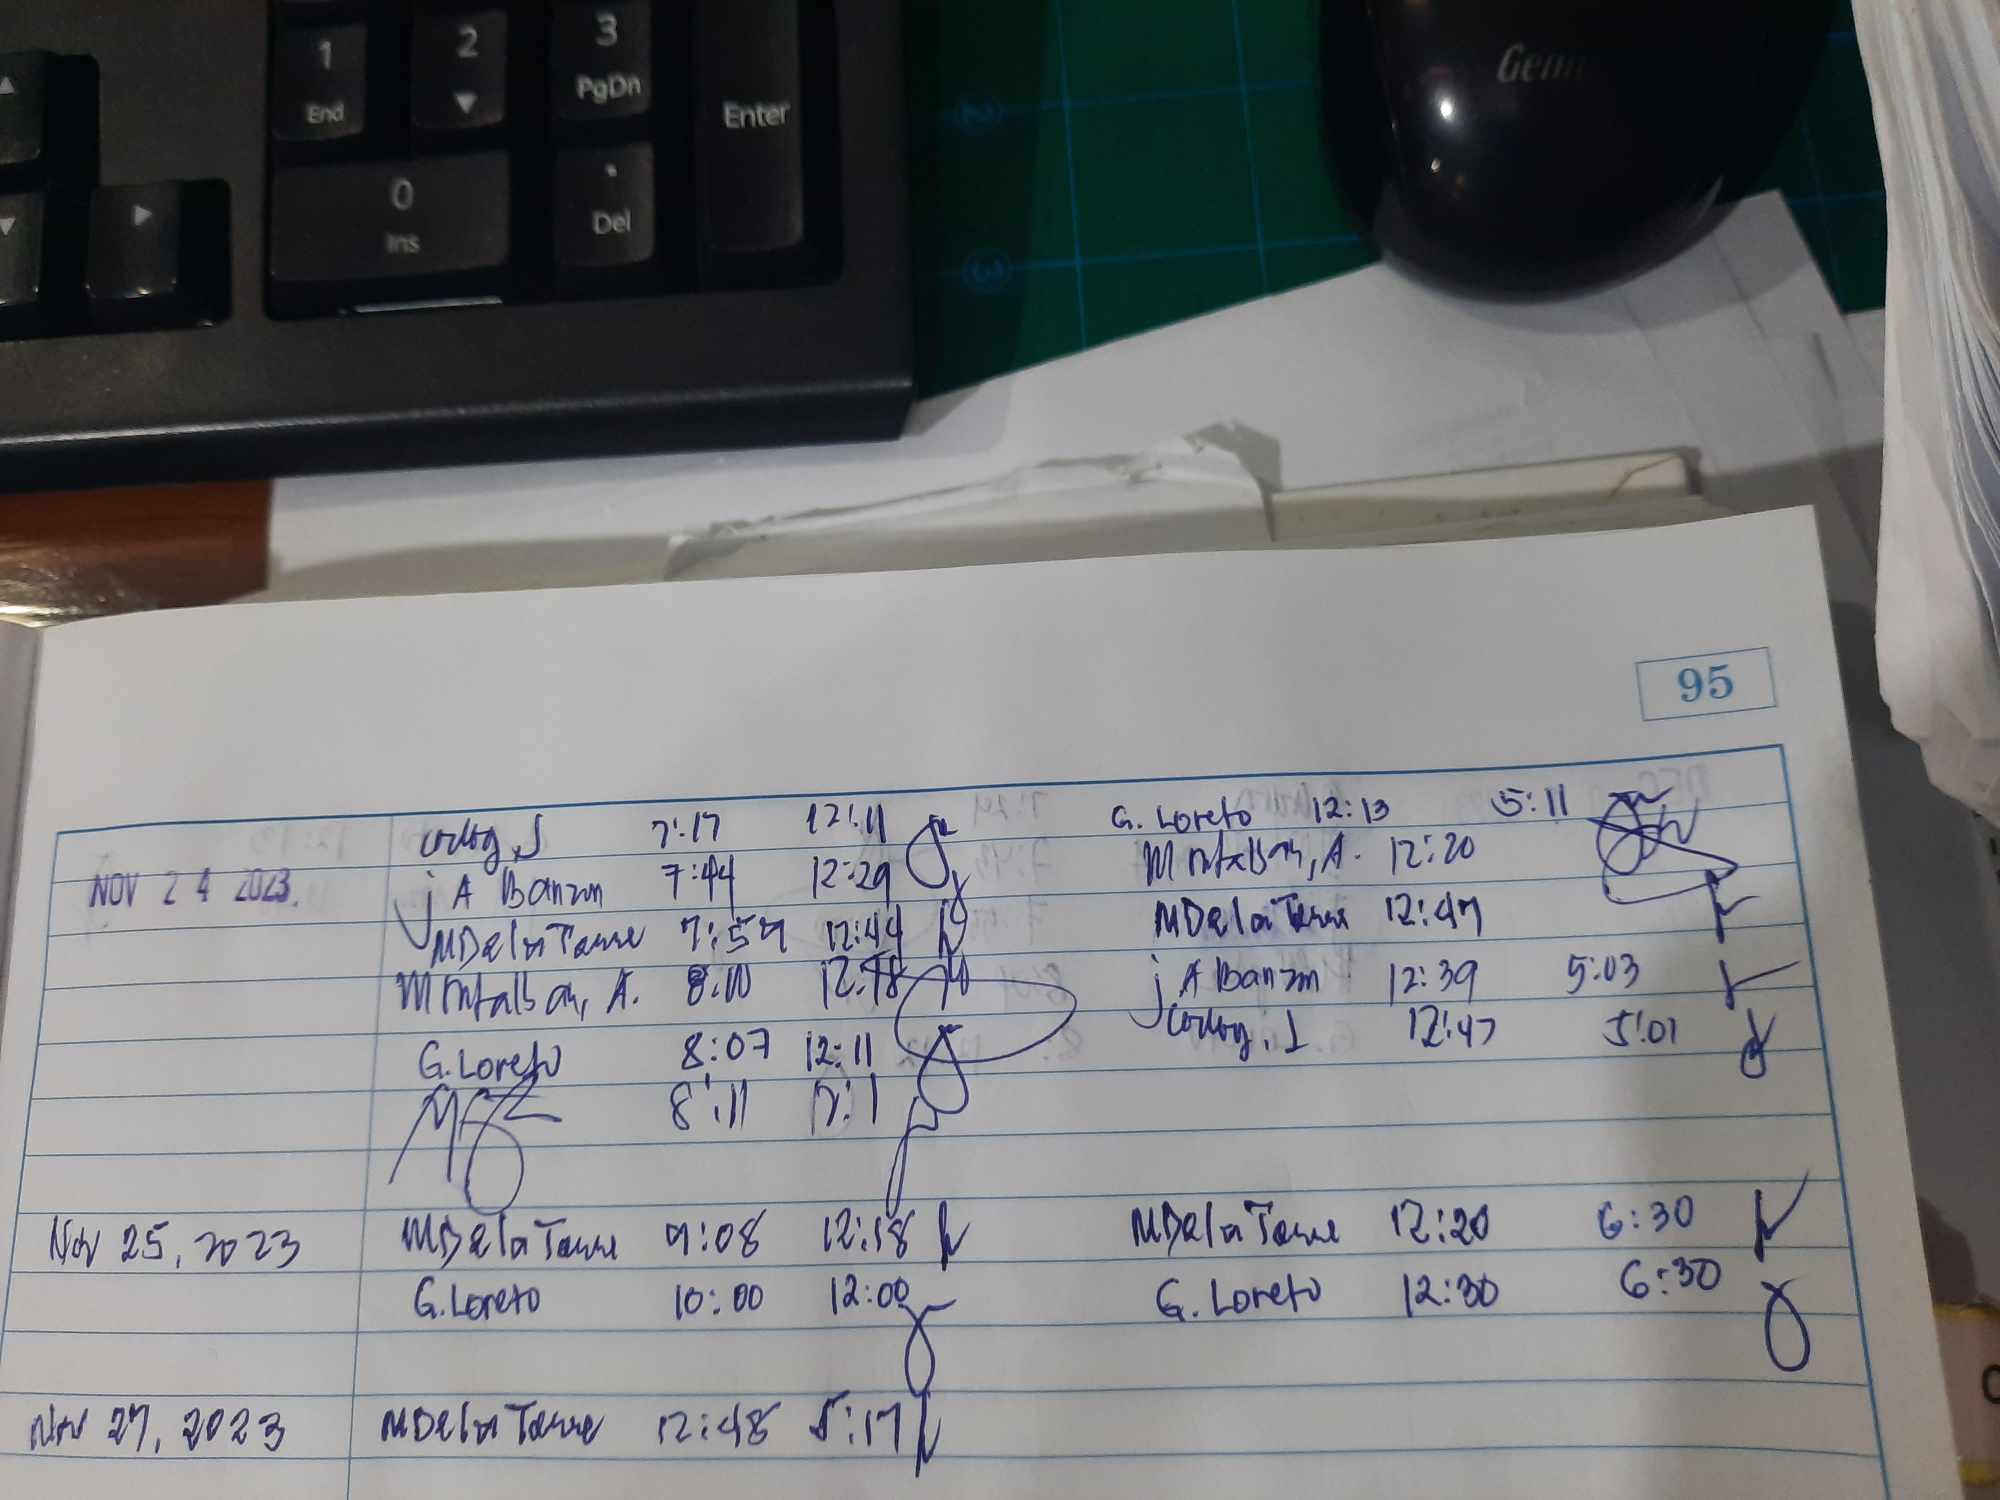 1 2 3
End PgDn Enter
0 .
Ins Del
2
3
95
7:17 12:11 G. Loreto 12:13 5:11
NOV 24 2023. j A Banzon 7:44 12:29 Montalban, A. 12:20
MDela Torre 7:57 12:44 MDela Torre 12:47
Montalban, A. 8:10 12:18 j A Banzon 12:39 5:03
G. Loreto 8:07 12:11 12:47 5:01
8:11
Nov 25, 2023 MDela Torre 9:08 12:18 MDela Torre 12:20 6:30
G. Loreto 10:00 12:00 G. Loreto 12:30 6:30
Nov 27, 2023 MDela Torre 12:48 5:17